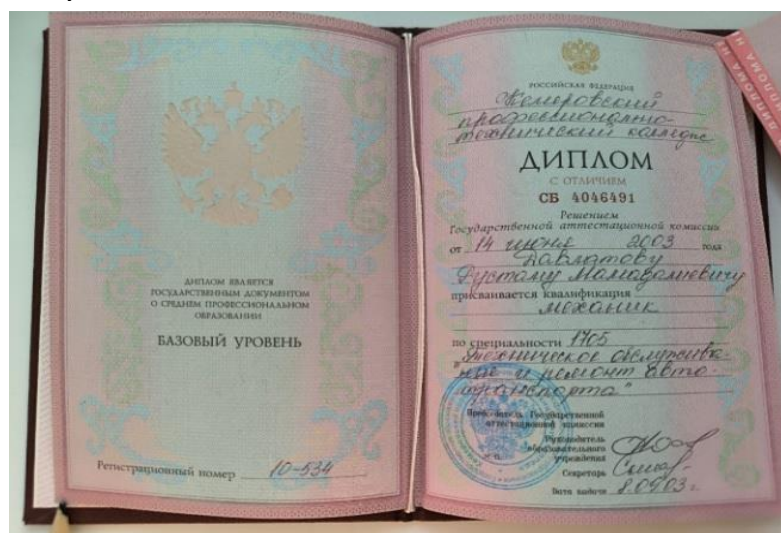 ДИПЛОМ ЯВЛЯЕТСЯ
ГОСУДАРСТВЕННЫМ ДОКУМЕНТОМ
О СРЕДНЕМ ПРОФЕССИОНАЛЬНОМ
ОБРАЗОВАНИИ
БАЗОВЫЙ УРОВЕНЬ
Регистрационный номер 10-534
РОССИЙСКАЯ ФЕДЕРАЦИЯ
Кемеровский
профессионально-
технический колледж
ДИПЛОМ
С ОТЛИЧИЕМ
СБ 4046491
Решением
Государственной аттестационной комиссии
от 14 июня 2003 года
Давлатову
Рустаму Мамадалиевичу
присваивается квалификация
механик
по специальности 1705
"Техническое обслужива-
ние и ремонт авто-
транспорта"
Председатель Государственной
аттестационной комиссии
Руководитель
образовательного
учреждения
Секретарь
Дата выдачи 8.07.03 г.
ДИПЛОМА